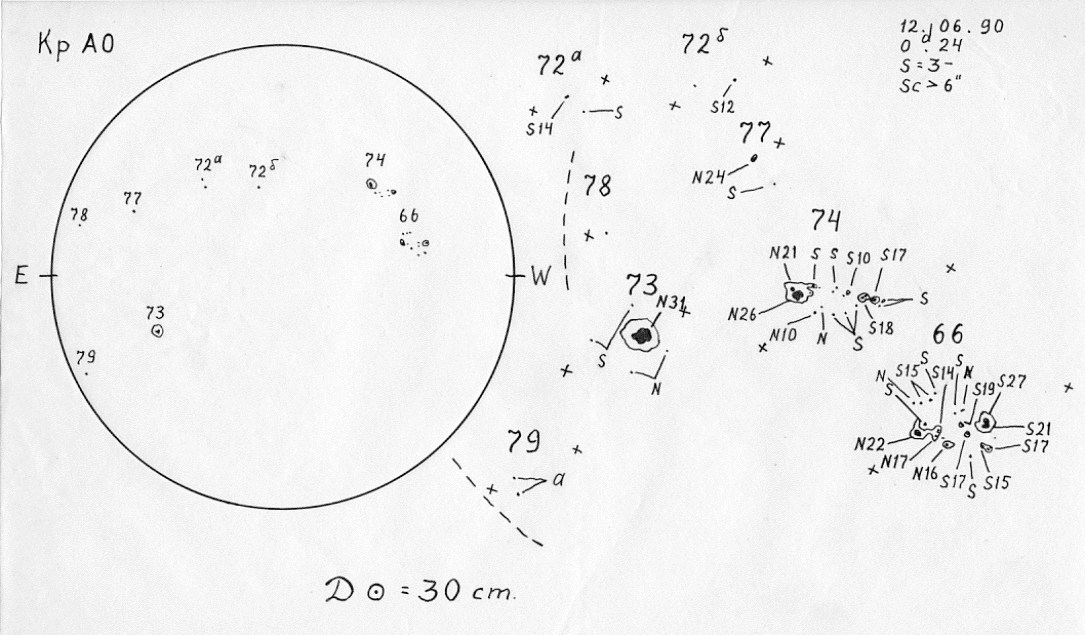 Кр АО
12.06.90
0 d. 24
S = 3-
Sc > 6"
E
W
72а
72б
74
77
78
66
73
79
72а
S14
S
72б
S12
77
N24
S
78
73
N31
S
N
74
N21
S
S
S10
S17
N26
N10
N
S
S18
S
66
N
S
S15
S
S14
S
N
S19
S27
S21
S17
N22
N17
N16
S17
S
S15
79
a
D ⊙ = 30 cm.